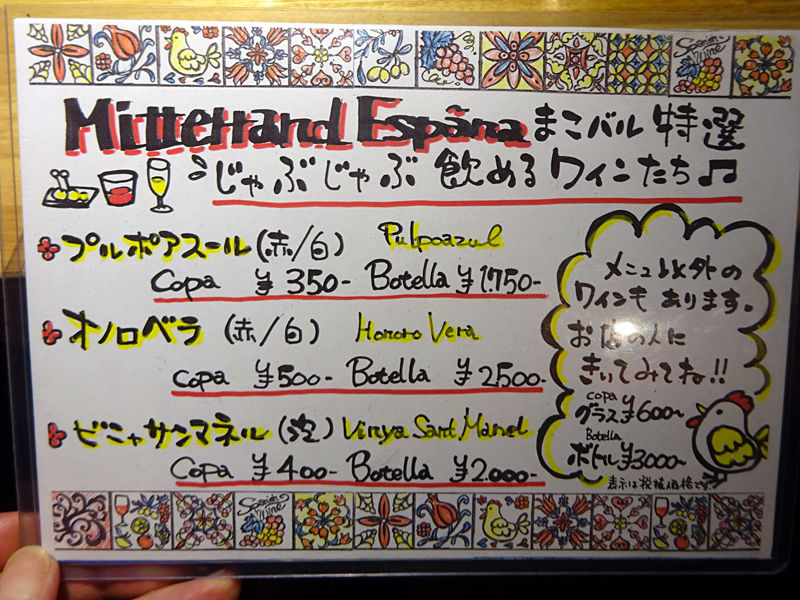 Spanish Wine
Mitterrand Españaまこバル 特選
じゃぶじゃぶ 飲める ワインたち♫
プルポアスール(赤/白) Pulpoazul
Copa ¥350- Botella ¥1.750-
オノロベラ(赤/白) Honoro Vera
Copa ¥500- Botella ¥2.500-
ビニャサンマネル(泡) Vinya Sant.Manel
Copa ¥400- Botella ¥2.000-
メニュー以外の
ワインも あります。
お店の人に
きいてみてね!!
copa
グラス¥600~
Botella
ボトル¥3000~
表示は税抜価格です。
Spanish Wine